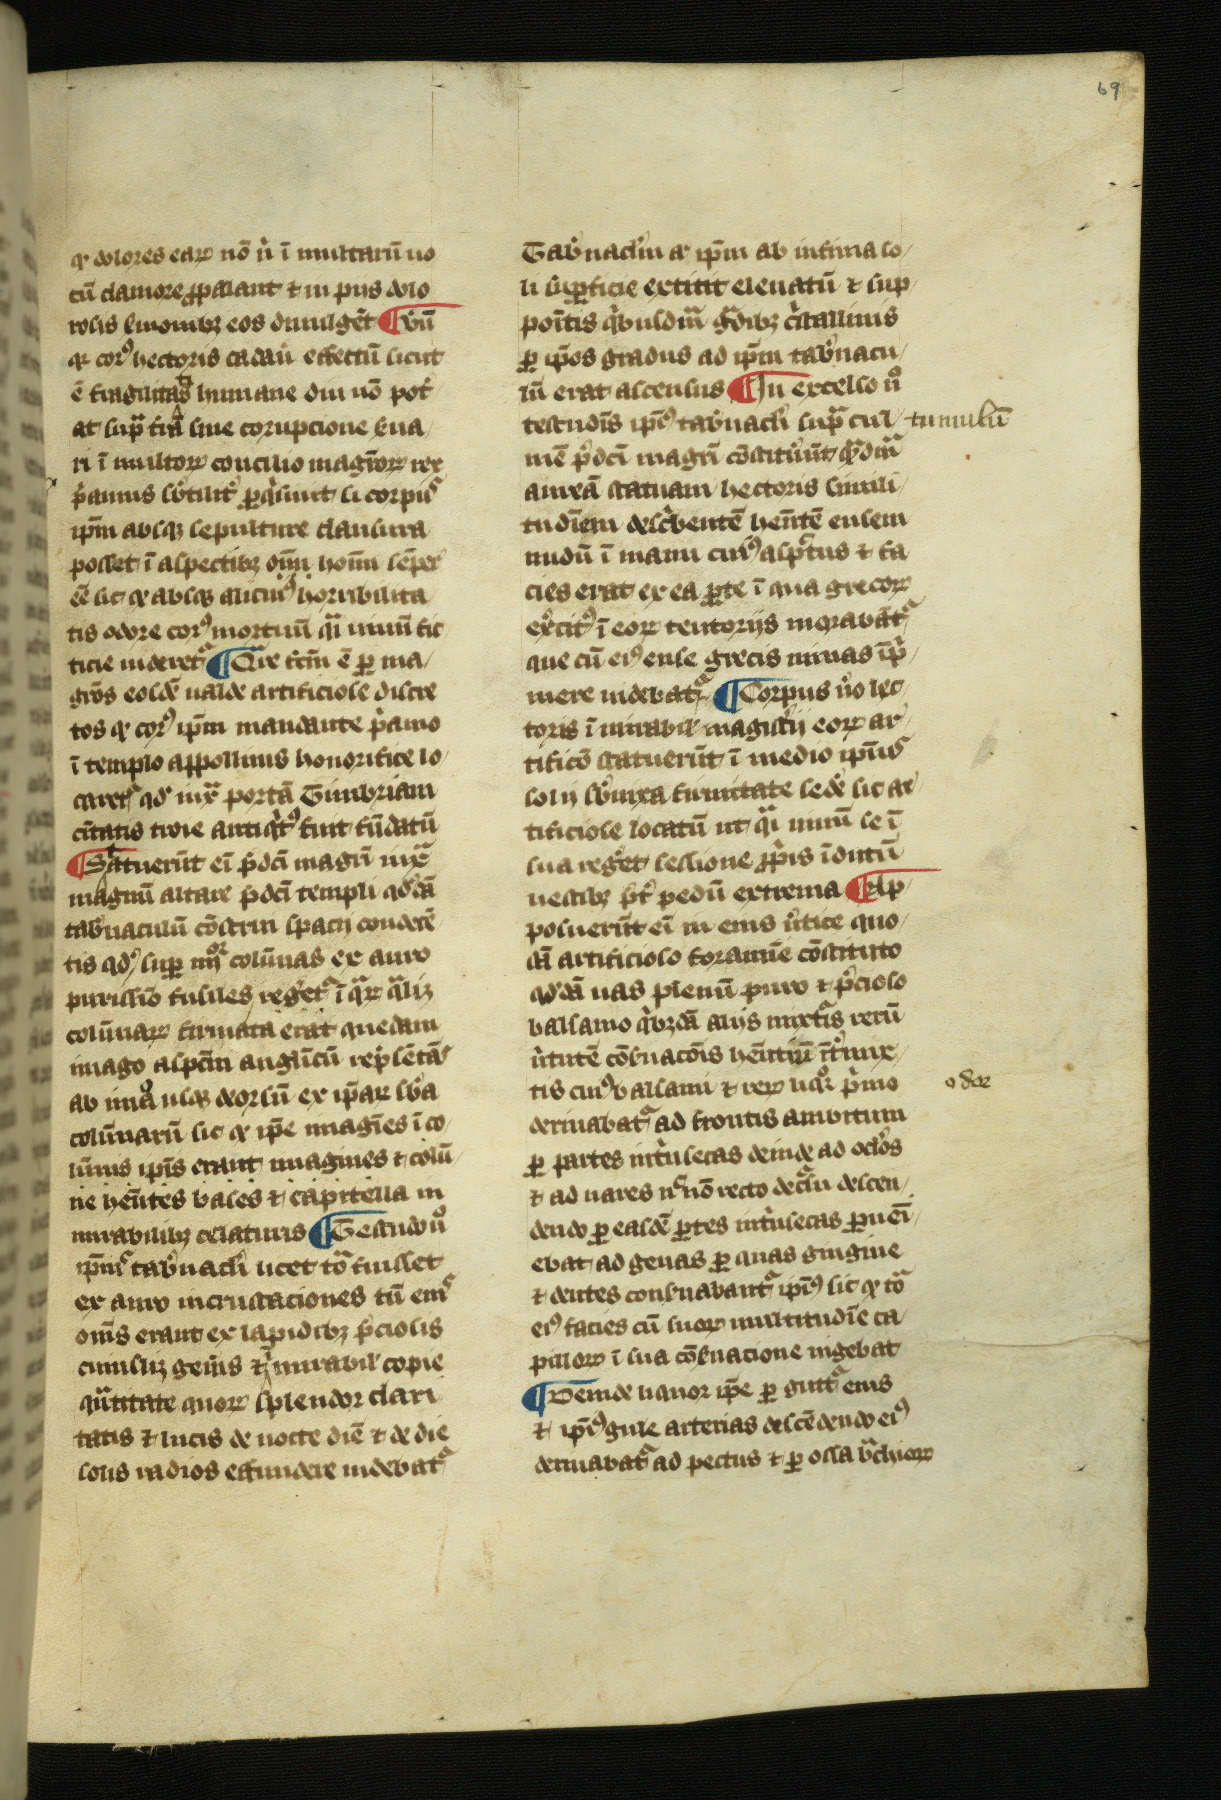 69
ꝙ dolores eaꝝ nō ñ ī multarū uo
cū clamore ꝓpalant ⁊ in piis dolo
rosis ẜmonibꝫ eos diuulgēt ¶ Vbū
ꝙ corꝰ hectoris cadau̓ effectū sicut
ē fragilitas humane diu nō pot̓
at supᵃ tr̄a sine corupcione ẜua/
ri ī multoꝝ concilio magr̄oꝝ rex
p̓amus sb̓tilit̓ ꝑq̓siuit si corpus
ip̄m absqꝫ sepulture clausura
posset ī aspectibꝫ oīm hoīm sēper
eē sic ꝙ absqꝫ alicuiꝰ horribilita
tis odore corꝰ mortuū q̄i uiuū fic
ticie uideretᵃ ¶ Qᵃre tc̄m ē ꝑ ma/
gr̄os eosdē ualde artificiose discre
tos ꝙ corꝰ ip̄m mandante p̓amo
ī templo appollinis honorifice lo
caretᵃ qd̓ iuxᵃ portā Timbriam
ciītatis troie antiq̓tꝰ fuit fūdatū
¶ Statuerūt eī p̄dc̄i magr̄i iuxᵃ
magnū altare p̄dc̄i templi qd̓dā
tab̓naculū cōstrui spacii conderē
tis qd̓ꝰ suꝑ iiijᵒʳ colūnas ex auro
purissīo fusiles reg̓et̓ ī qᵃꝝ qᵃlꝫ
colūnaꝝ firmata erat quedam
imago aspc̄m anglīcū rep̓sētās
ab imᵒ usqꝫ deorsū ex ip̄aꝝ sb̓a
colūnarū sic ꝙ ip̄e imagīes ī co/
lūnis ip̄is erant imagines ⁊ colū/
ne hēntes bases ⁊ capitella in
mirabilibꝫ celaturis ¶ Testudo uᵒ
ip̄ius tab̓nacl̓i licet tōᵃ fuisset
ex auro incrustaciones tn̄ eiuˢ
om̄s erant ex lapidibꝫ p̄ciosis
cuiuslꝫ gen̓is ⁊ ī mirabil̓ copie
qᵃntitate quoꝝ splendor clari
tatis ⁊ lucis de nocte diē ⁊ de die
solis radios effundere uidebatᵃ
Tab̓naclm̄ aꝉ ip̄m ab infima so/
li suꝑficie extitit eleuatū ⁊ sup/
poītis q̓busdm̄ gᵃdibꝫ c̓stallinis
ꝑ ip̄os gradus ad ip̄m tab̓nacu/
lū erat ascensus ¶ In excelso uᵒ
testudīs ip̄iꝰ tab̓nacl̓i supᵃ cul/ tumulū
mē p̓dc̄i magr̄i cōstitūūt qᵃdmᵃ
aureā statuam hectoris simili/
tudīem desc̓bentē hēntē ensem
nudū ī manu cuiꝰ aspectus ⁊ fa
cies erat ex ea ꝑte ī qua grecoꝝ
ex̓citꝰ ī eoꝝ tentoriis morabatᵃ
que cū eiꝰ ense grecis minas īp̓
mere uidebatᵃ ¶ Corpus uᵒ hec
toris ī mirabil̓ magist̓ii eoꝝ ar/
tificō statuerūt ī medio ip̄ius
solii sb̓nixa firmitate sede̓ sic ar
tificiose locatū ut q̄i uiuū se ī
sua reg̓et sessione ꝓp̓is īdutū
uestibꝫ p̄t̓ pedū extrema ¶ Ap/
posuerūt eī in eius u̓tice quo/
dā artificioso foramīe cōstituto
qd̓dā uas plenū puro ⁊ p̓cioso
balsamo q̓bꝫdā aliis mixtis rerū
u̓tutē cōẜuacōis hēntiū ītmix/
tis cuiꝰ balsami ⁊ reꝝ liq̓or p̓mo odor
deriuabatᵃ ad frontis ambitum
ꝑ partes intⁱnsecas deinde ad oclōs
⁊ ad nares nᶜnō recto decᵃsu descen/
dendo ꝑ easdē ꝑtes intⁱnsecas ꝑuei/
ebat ad genas ꝑ quas gingiue
⁊ dentes conẜuabantᵃ ip̄iꝰ sic ꝙ tōᵃ
eiꝰ facies cū suoꝝ multitudīe ca/
pilloꝝ ī sua cōẜuacione uigebat
¶ Deinde liquor ip̄e ꝑ guttᵃ eius
⁊ ip̄iꝰ gule arterias descēdendo eiꝰ
deriuabatᵃ ad pectus ⁊ ꝑ ossa bᵃchioꝝ